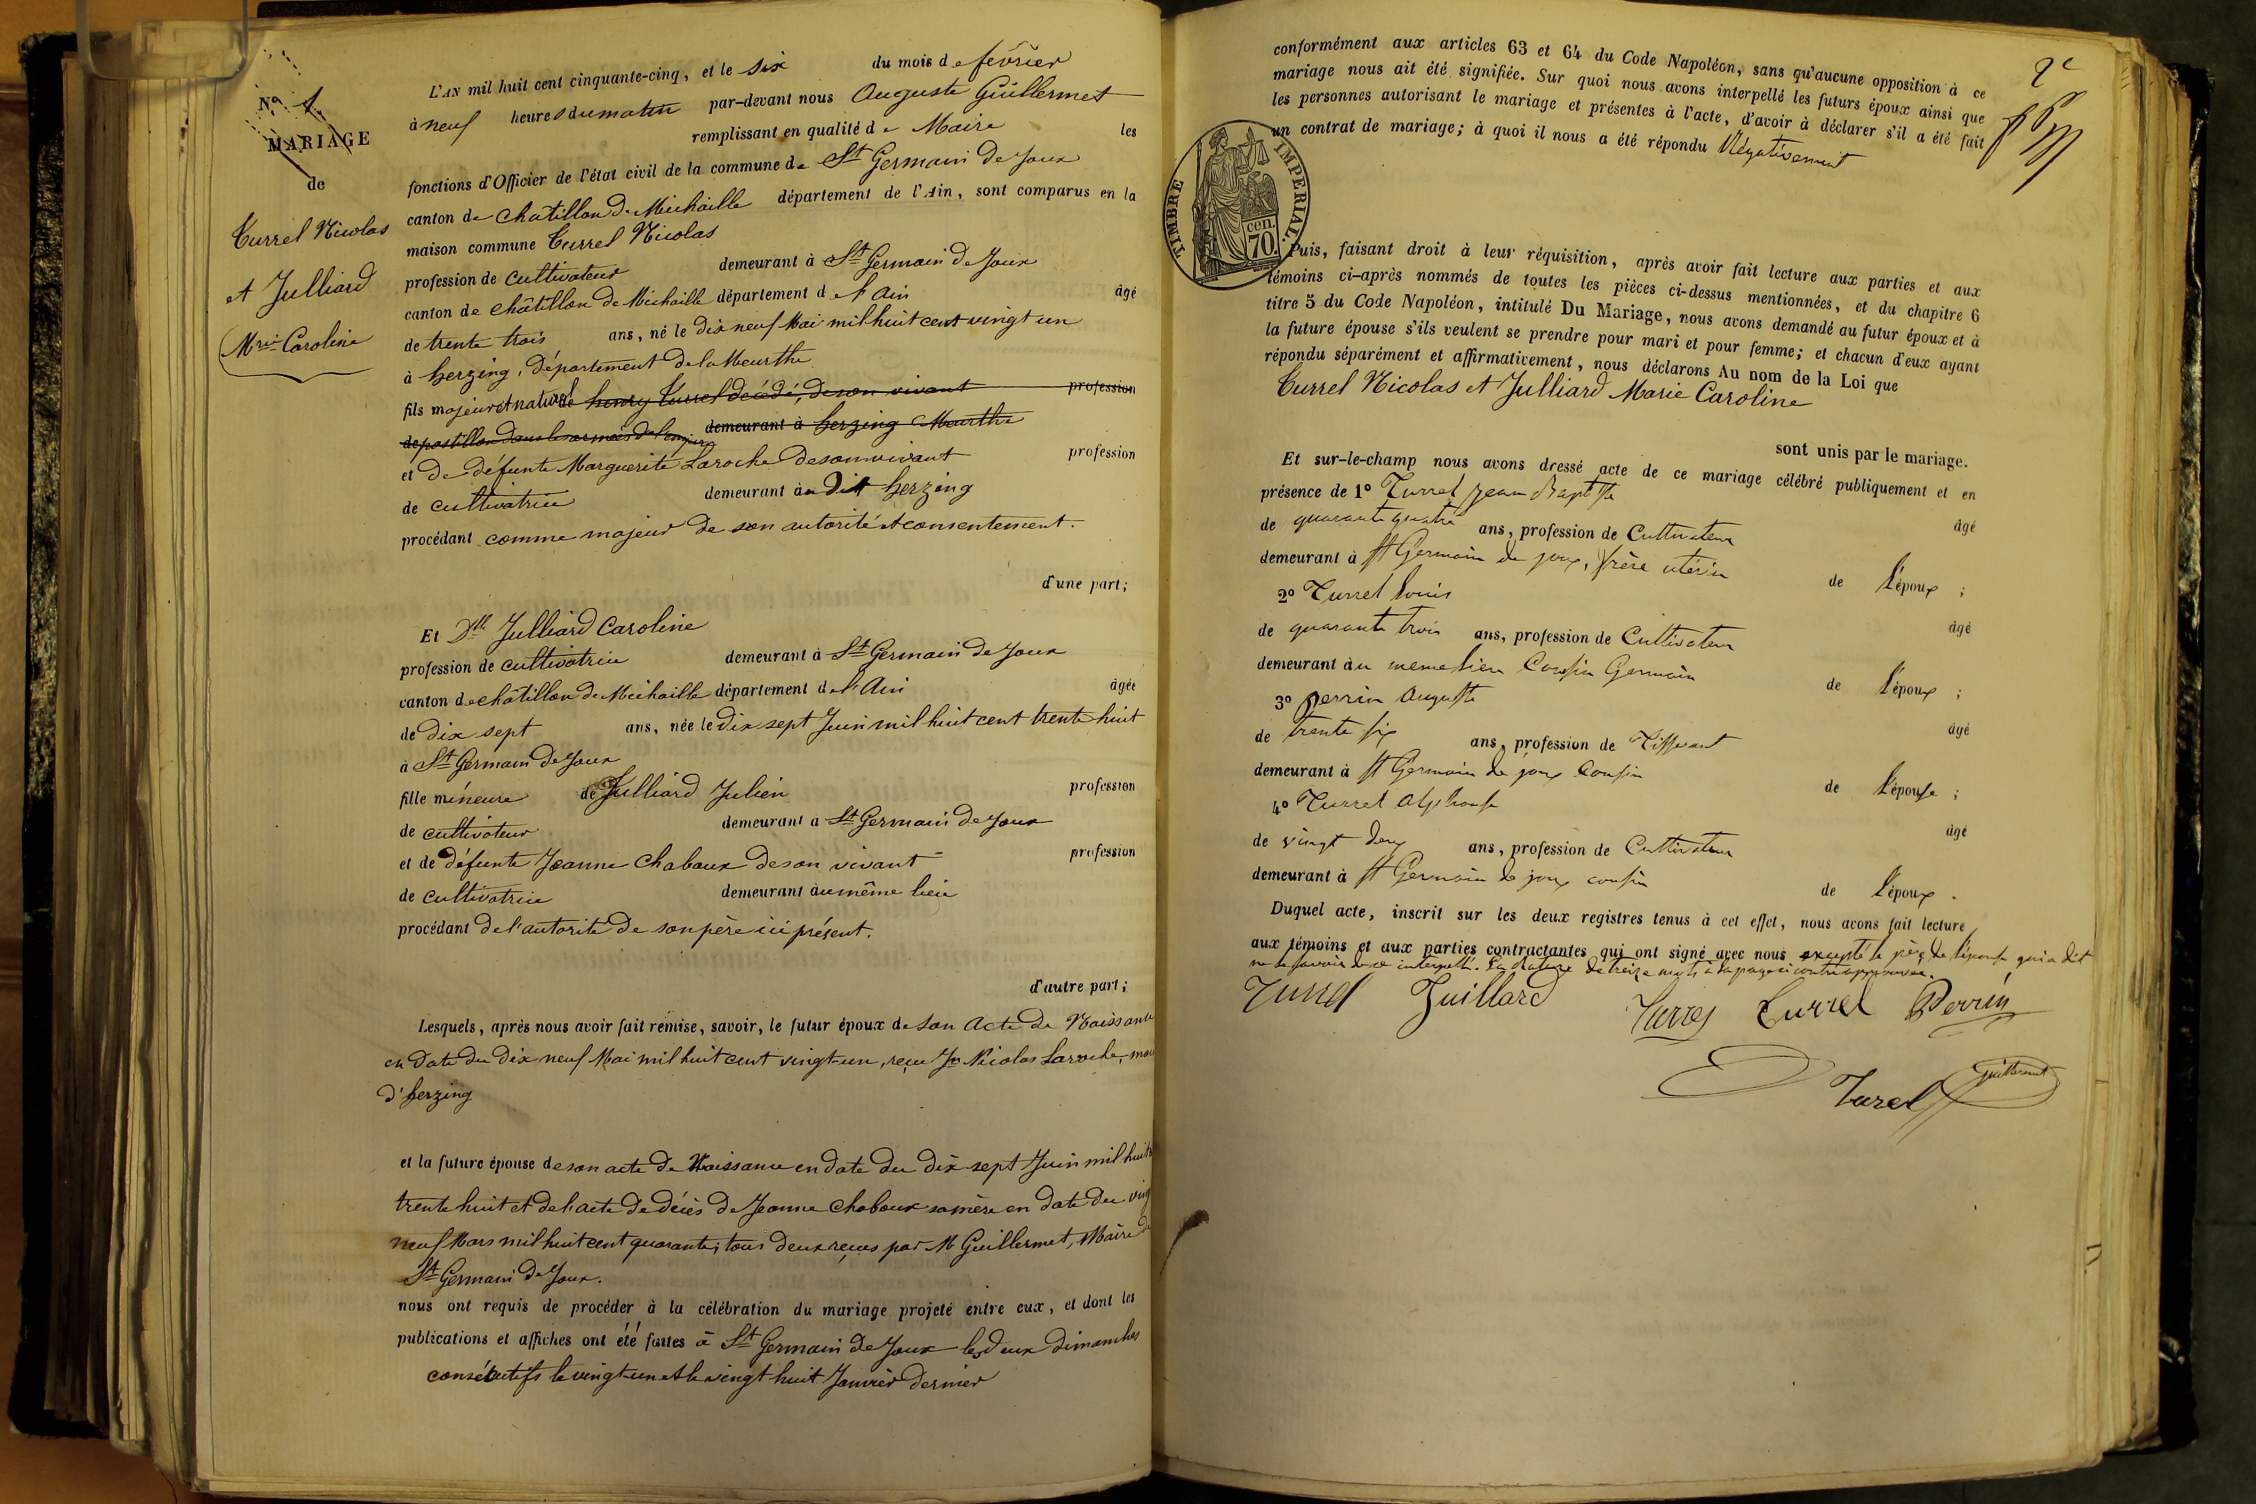 No. 1.
MARIAGE
de
Turrel Nicolas
et Julliard
Mrie Caroline
L'AN mil huit cent cinquante-cinq, et le six du mois de février
à neuf heures du matin par-devant nous Auguste Guillermet
remplissant en qualité de Maire les
fonctions d'Officier de l'état civil de la commune de St Germain de Joux
canton de Chatillon de Michaille département de l'Ain, sont comparus en la
maison commune Turrel Nicolas
profession de cultivateur demeurant à St Germain de Joux
canton de Châtillon de Michaille département de l'Ain âgé
de trente trois ans, né le dix neuf Mai mil huit cent vingt un
à herzing, département de la Meurthe
fils majeur et naturel de henry Turrel décédé, de son vivant profession
de postillon dans les armées de l'empire demeurant à herzing Meurthe
et de défunte Marguerite Laroche de son vivant profession
de cultivatrice demeurant au dit herzing
procédant comme majeur de son autorité et consentement.
d'une part;
Et Dlle Julliard Caroline
profession de cultivatrice demeurant à St Germain de Joux
canton de châtillon de Michaille département de l'Ain âgée
de dix sept ans, née le dix sept Juin mil huit cent trente huit
à St Germain de Joux
fille mineure de Julliard Julien profession
de cultivateur demeurant a St Germain de Joux
et de défunte Jeanne Chabaux de son vivant profession
de cultivatrice demeurant au même lieu
procédant de l'autorité de son père ici présent.
d'autre part;
Lesquels, après nous avoir fait remise, savoir, le futur époux de son Acte de Naissance
en date du dix neuf Mai mil huit cent vingt-un, reçu Nicolas Laroche, maire
d'herzing
et la future épouse de son acte de Naissance en date du dix sept Juin mil huit
trente huit et de l'acte de décès de Jeanne Chabaux sa mère en date du vingt
neuf Mars mil huit cent quarante; tous deux reçus par M Guillermet, Maire de
St Germain de Joux.
nous ont requis de procéder à la célébration du mariage projeté entre eux, et dont les
publications et affiches ont été faites à St Germain de Joux les deux dimanches
consécutifs le vingt-un et le vingt huit Janvier dernier
2e
conformément aux articles 63 et 64 du Code Napoléon, sans qu'aucune opposition à ce
mariage nous ait été signifiée. Sur quoi nous avons interpellé les futurs époux ainsi que
les personnes autorisant le mariage et présentes à l'acte, d'avoir à déclarer s'il a été fait
un contrat de mariage; à quoi il nous a été répondu Négativement
TIMBRE IMPERIAL.
70 cen.
Puis, faisant droit à leur réquisition, après avoir fait lecture aux parties et aux
témoins ci-après nommés de toutes les pièces ci-dessus mentionnées, et du chapitre 6
titre 5 du Code Napoléon, intitulé Du Mariage, nous avons demandé au futur époux et à
la future épouse s'ils veulent se prendre pour mari et pour femme; et chacun d'eux ayant
répondu séparément et affirmativement, nous déclarons Au nom de la Loi que
Turrel Nicolas et Julliard Marie Caroline
sont unis par le mariage.
Et sur-le-champ nous avons dressé acte de ce mariage célébré publiquement et en
présence de 1º Turrel jean Baptiste âgé
de quarante quatre ans, profession de Cultivateur
demeurant à St Germain de joux, frère utérin de l'époux ;
2º Turrel louis âgé
de quarante trois ans, profession de Cultivateur
demeurant au meme lieu Cousin Germain de l'époux ;
3º perrin auguste âgé
de trente six ans, profession de Tisserant
demeurant à St Germain de joux Cousin de l'épouse ;
4º Turrel alphonse âgé
de vingt deux ans, profession de Cultivateur
demeurant à St Germain de joux cousin de l'époux.
Duquel acte, inscrit sur les deux registres tenus à cet effet, nous avons fait lecture
aux témoins et aux parties contractantes qui ont signé avec nous excepté le père de l'épouse qui a dit
ne le savoir de ce interpellé. La rature de treize mots à la page ci contre approuvée.
Turrel Juillard Turrel Turrel Perrin
Turel Guillermet